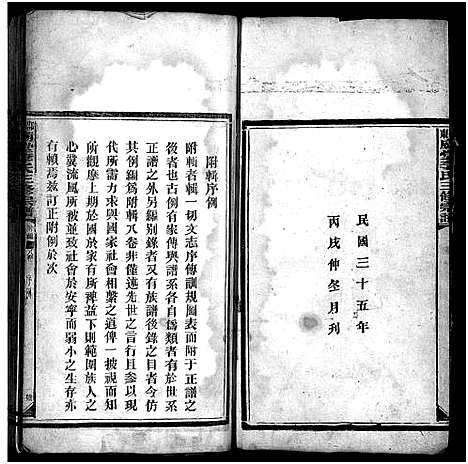 民國三十五年
丙戌仲冬月刊
附輯序例
附輯者輯一切文志序傳訓規圖表而附于正譜之
後者也古例有家傳與譜系各自爲類者有於世系
正譜之外另編別錄者又有族譜後錄之目者今仿
其例編爲附輯八卷非僅述先世之言行且參以現
代所需力求與國家社會相繫之道俾一披視而知
所觀摩上期於國於家有所裨益下則範圍族人之
心冀流風所被並致社會於安寧而弱小之生存亦
有賴焉茲訂正附例於次